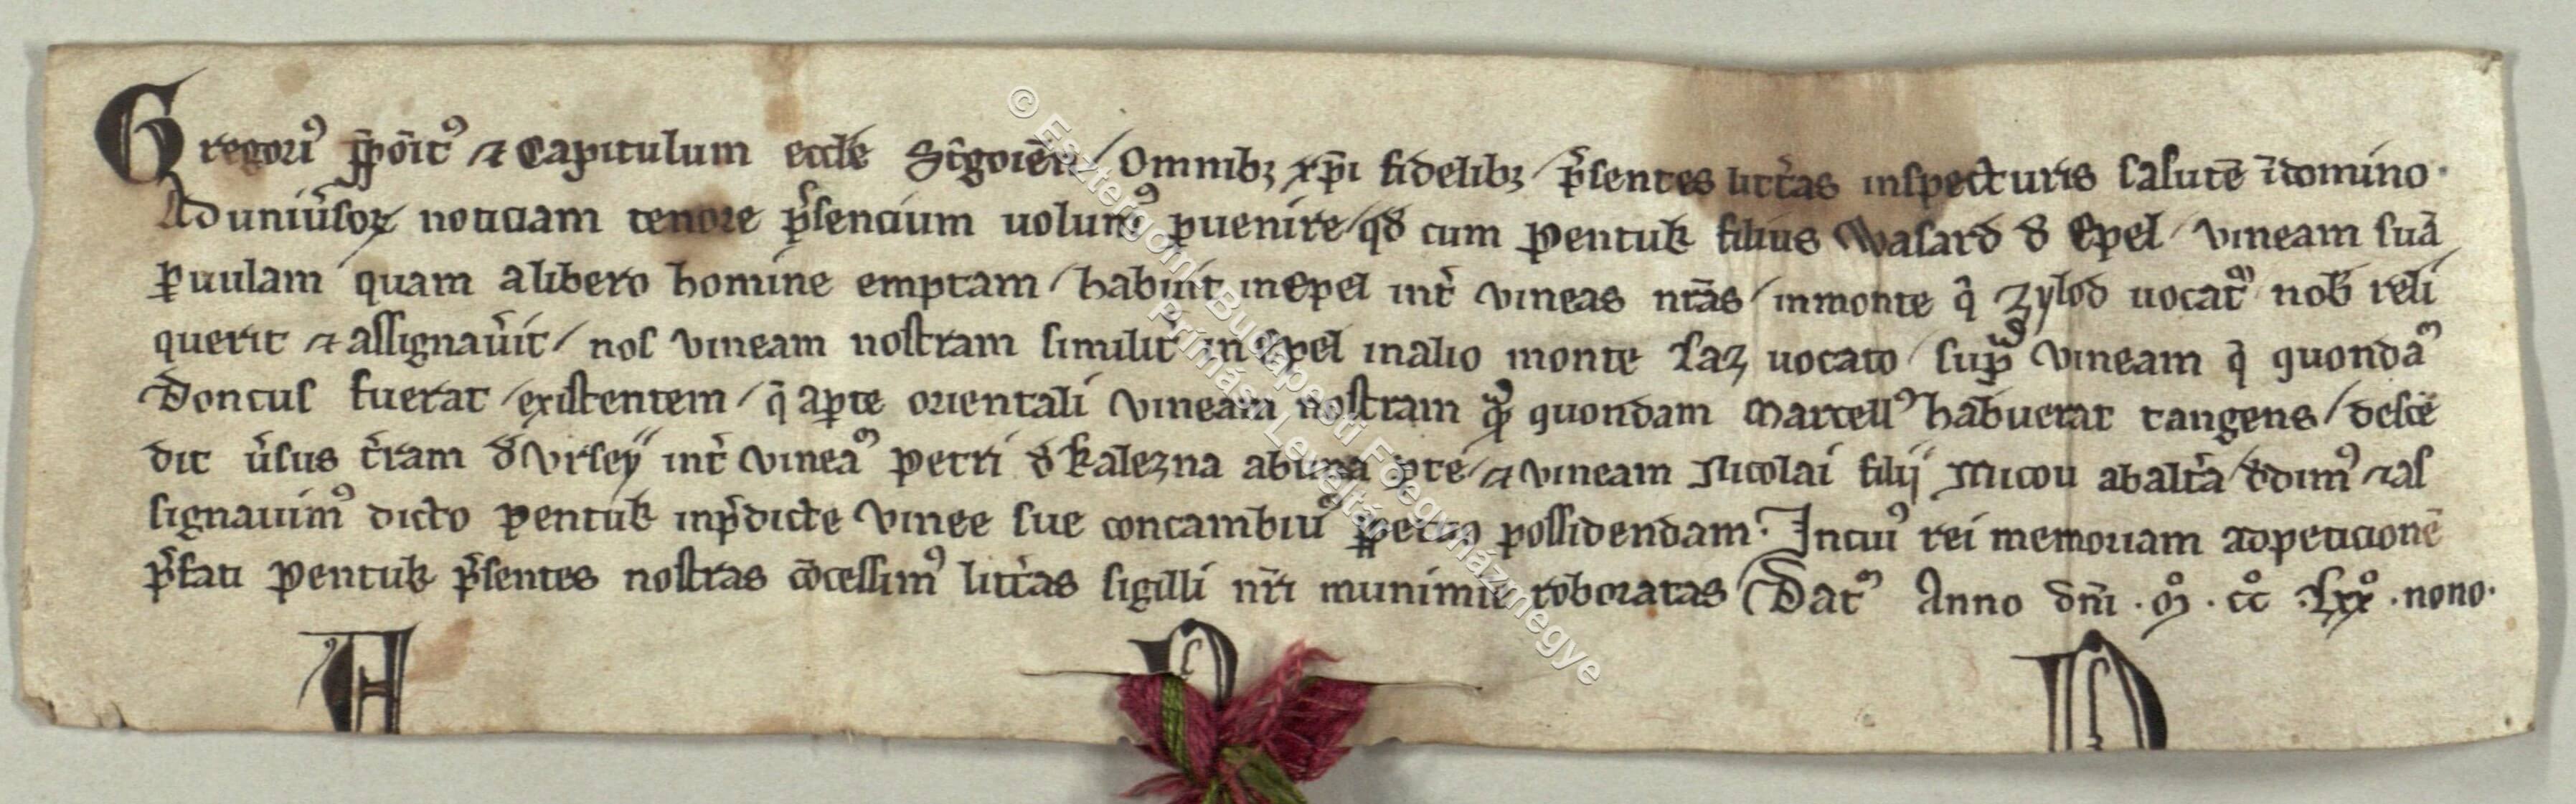 Gregori᷒ p̄poit᷒ ⁊ Capitulum eccl̄e Strigoien̄ / Omnibꝫ xp̄i fidelibꝫ / p̄sentes litt̄as inspecturis salutē ī domino ·
Ad univ̄soꝝ noticiam tenore p̄sencium uolum᷒ ꝑuenire / qd̄ cum Pentuk filius Wasard d̄ Epel / vineam suā
ꝑuulam quam a libero homine emptam / habuit in Epel int̄ vineas nr̄as / in monte q̄ Zylod uocat᷒ nob̄ reli
querit ⁊ assignav̄it / nos vineam nostram similit̄ in Epel in alio monte Laz uocato / sup̄ vineam q̄ quondā
Doncus fuerat / existentem / q̄ a ꝑte orientali vineam nostram quā quondam Marcell᷒ habuerat tangens / descē
dit v̄sus t̄ram d̄ Vrsey int̄ vineā Petri d̄ Kalezna ab una ꝑte / ⁊ vineam Nicolai filij Micou ab alt̄a / dedim᷒ ⁊ as
signauim᷒ dicto Pentuk in p̄dicte vinee sue concambiū ꝑpetuo possidendam · In cui᷒ rei memoriam ad peticionē
p̄fati Pentuk p̄sentes nostras ꝯcessim᷒ litt̄as sigilli nr̄i munimine roboratas / Dat᷒ Anno dn̄i · M̊ · cc̊ · Lxx̊ · nono ·
A B D
© Esztergom-Budapesti Főegyházmegye
Prímási Levéltár